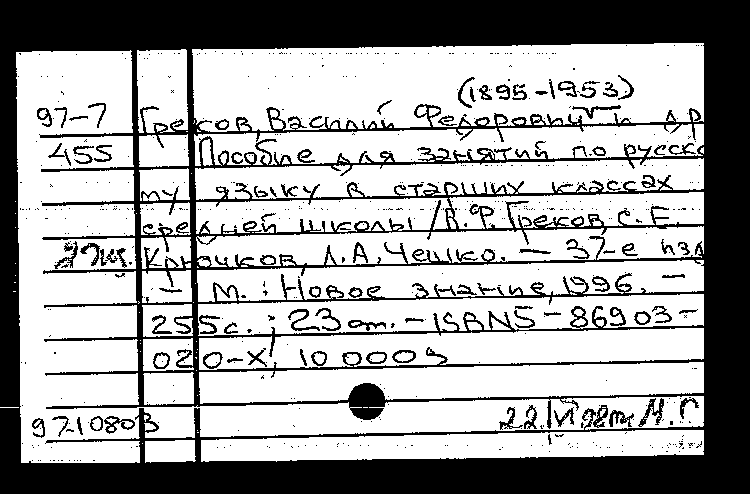 (1895-1953)
97-7 Греков, Василий Федорович и др
455 Пособие для занятий по русско
му языку в старших классах
средней школы / В.Ф. Греков, С.Е.
2 Крючков, Л.А. Чешко. — 37-е изд
. — М. : Новое знание, 1996. —
255с. ; 23 см. — ISBN 5-86903-
020-X, 10 000 э
97-10803 22.IV 98 М.Г